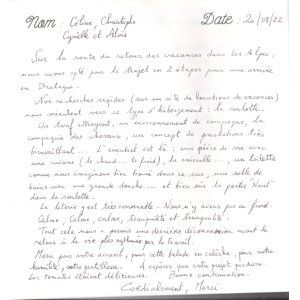 Nom : Céline, Christophe Date : 20/08/22
Cyrielle et Aloïs
Sur la route du retour des vacances dans les Alpes,
nous avons opté pour le trajet en 2 étapes pour une arrivée
en Bretagne.
Nos recherches rapides (sur un site de locations de vacances)
nous orientent vers ce type d'hébergement : la roulotte.
Un tarif attrayant, un environnement de campagne, la
compagnie des chevaux, un concept de prestations très
bienveillant... L'essentiel est là : une pièce de vie avec
une cuisine (le chaud... le froid), la vaisselle..., un toilette
comme nous imaginions bien trouvé dans ce cas, une salle de
bains avec une grande douche... et bien sûr la partie Nuit
dans la roulotte.
La literie y est très convenable. Nous n'y avons pas eu froid.
Calme, calme, calme, tranquillité et tranquillité.
Tout cela nous a permis une dernière déconnexion avant le
retour à la vie plus rythmée par le travail.
Merci pour votre accueil, pour cette balade en calèche, pour votre
humilité, votre gentillesse. A espérer que votre projet perdure
Les tomates étaient délicieuses. Bonne continuation.
Cordialement, Merci